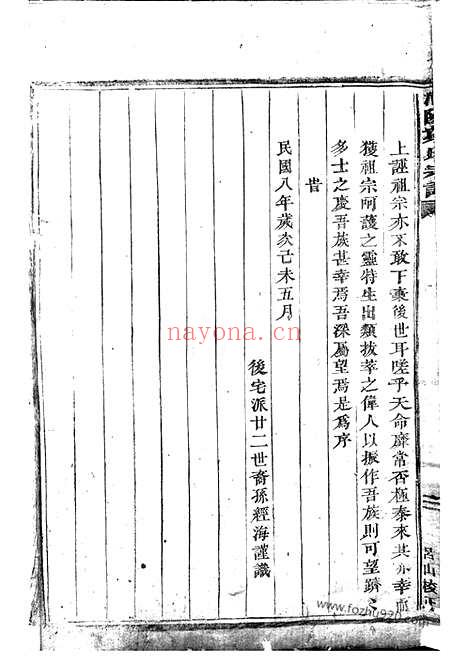 上誣祖宗亦不敢下棄後世耳嗟乎天命靡常否極泰來其亦幸而
獲祖宗呵護之靈特生出類拔萃之偉人以振作吾族則可望躋
多士之慶吾族甚幸焉吾深屬望焉是爲序
旹
民國八年歲次己未五月
後宅派廿二世裔孫經海謹識
nayona.cn
www.fozhu920.com